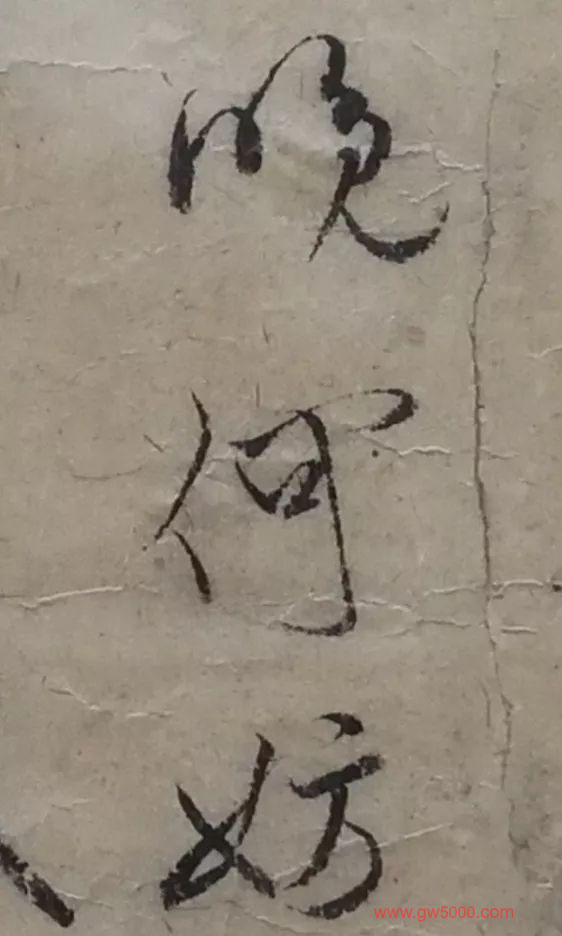 晚何妨
www.gw5000.com